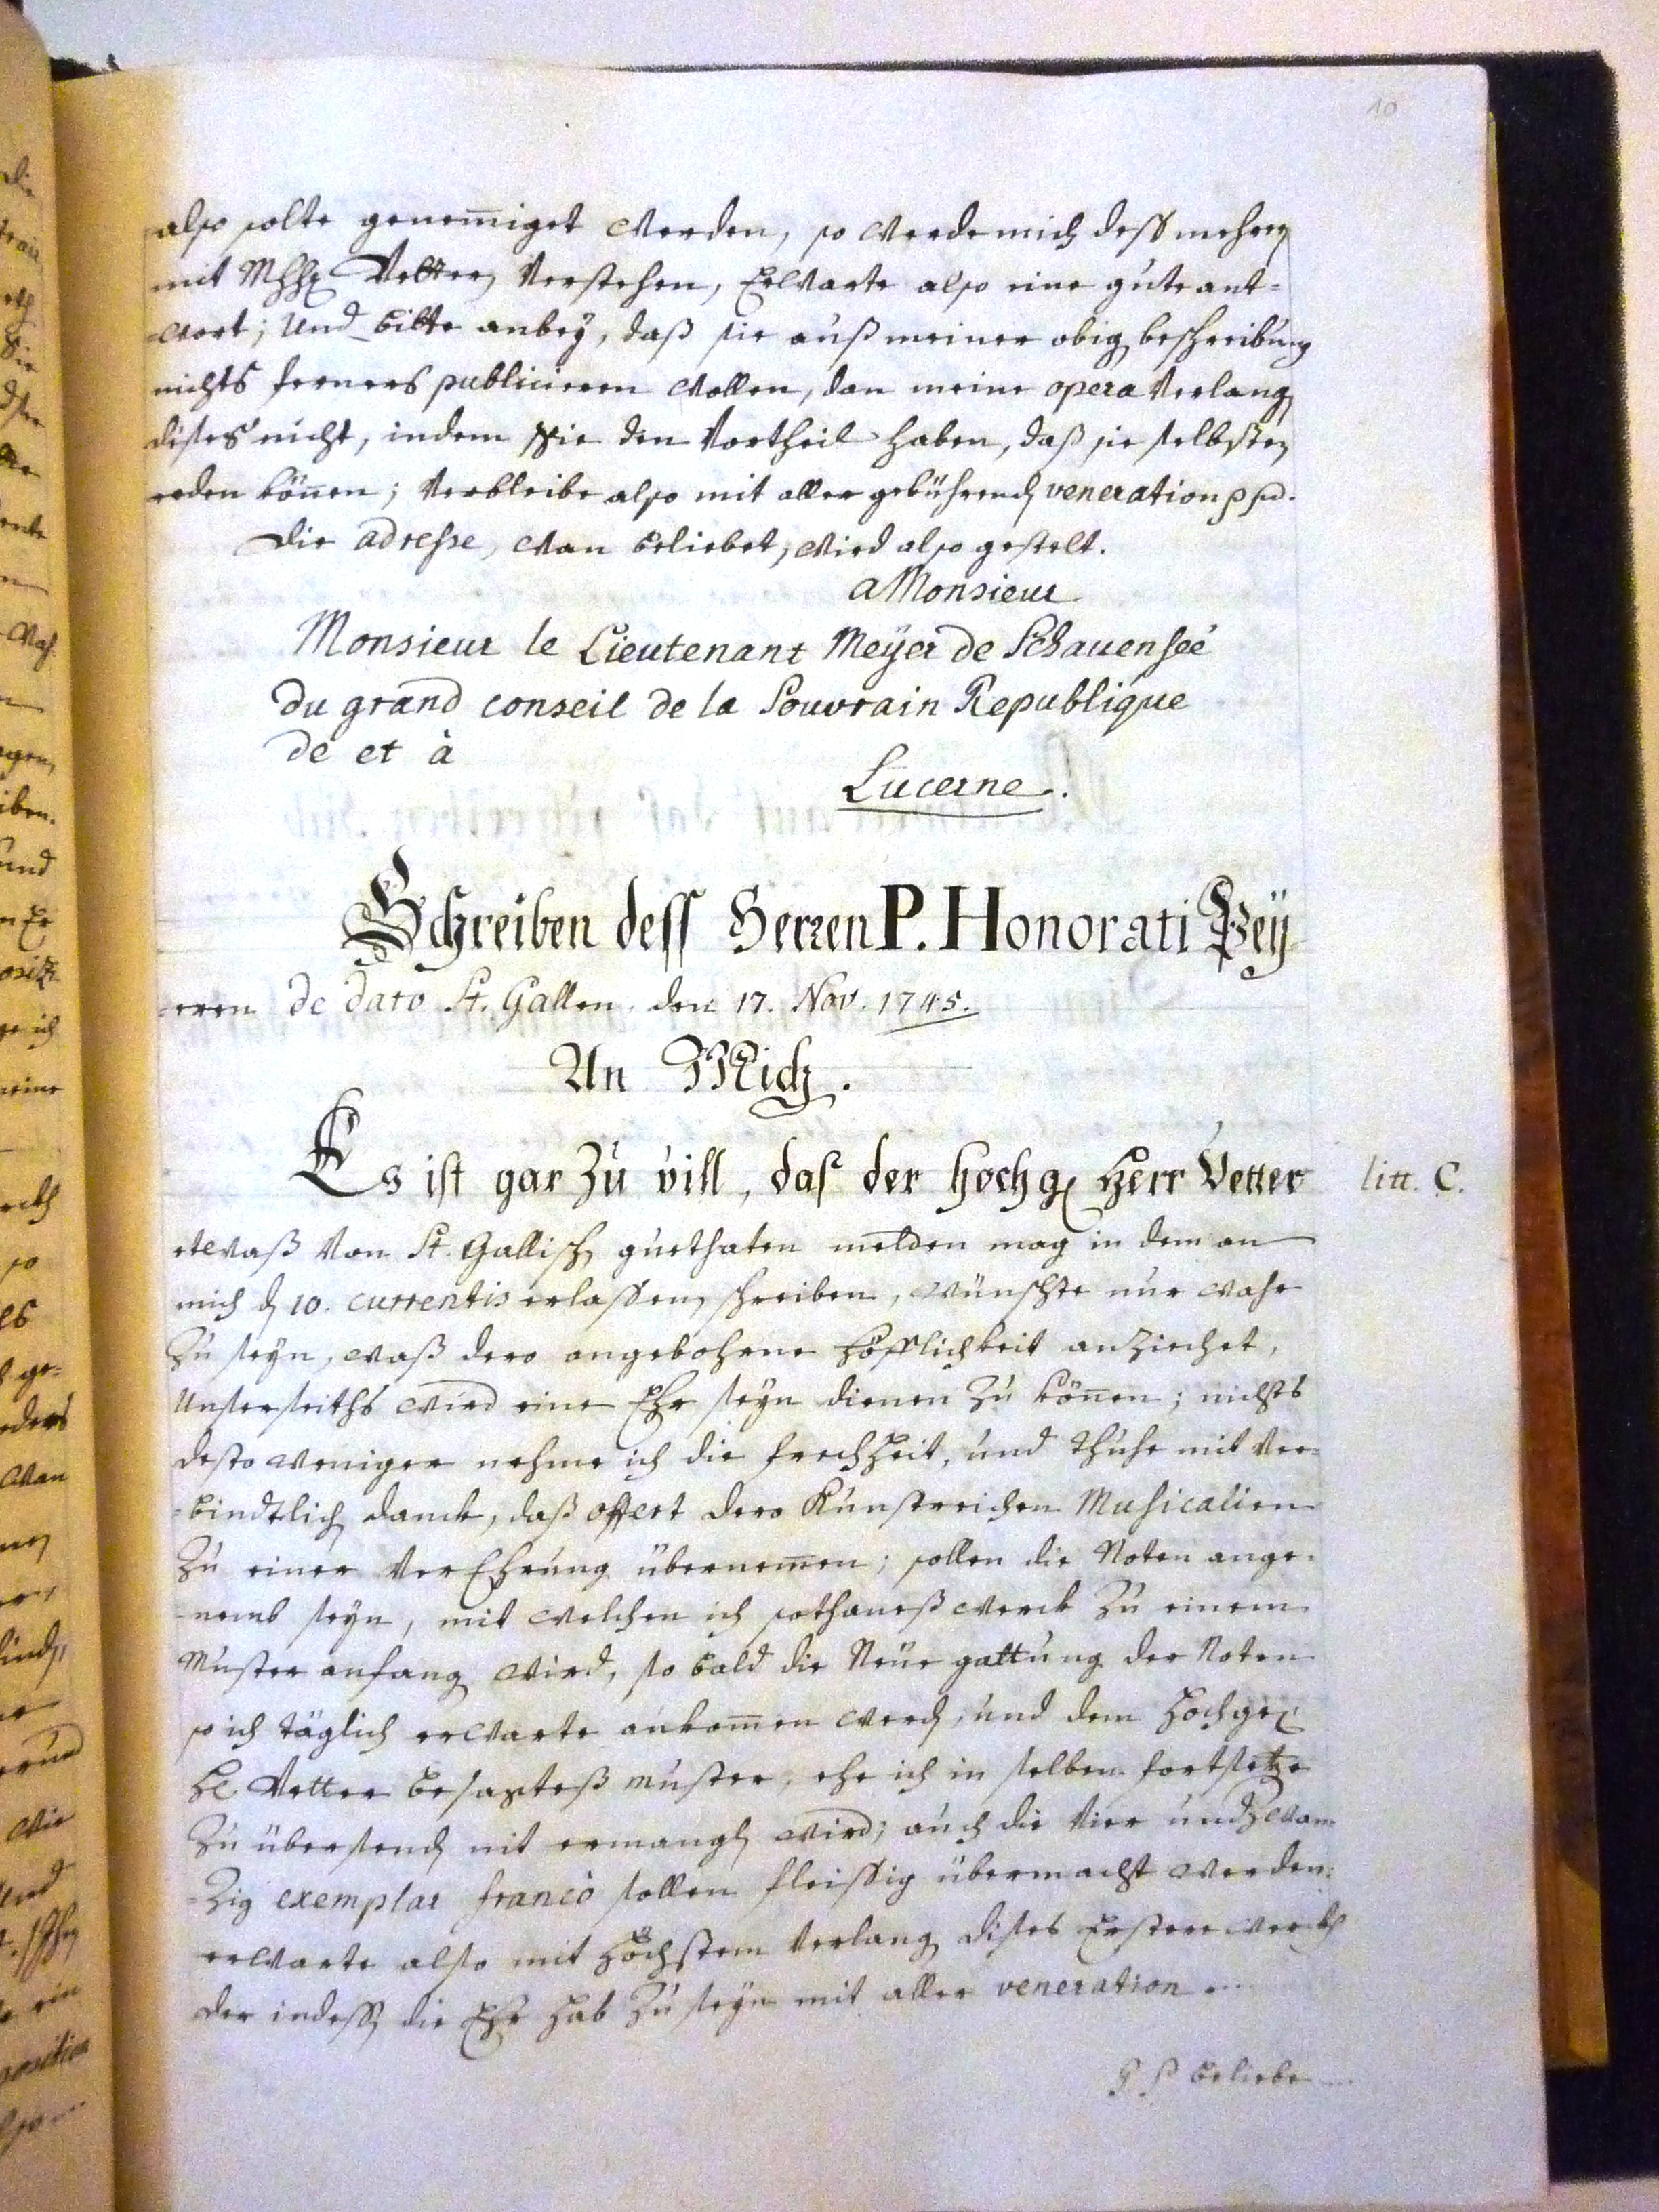 10
also solte genem̄iget werden, so werde mich dess mehrern
mit Vettern Verstehen, Erwarte also eine gute ant=
=wort; Und bitte anbey, daß sie auß meiner obig beschreibung
nichts ferners publicieren wollen, dan meine opera Verlang
dises nicht, indem sie den Vortheil haben, daß sie selbsten
reden kön̄en; Verbleibe also mit aller gebührend veneration
Die adresse, wan beliebet, wird also gestelt.
a Monsieur
Monsieur le Lieutenant Meÿer de Schauenseé
du grand conseil de la Souvrain Republique
de et à
Lucerne.
Schreiben dess Herren P. Honorati Peÿ
=eren de dato St. Gallen den 17. Nov. 1745.
An Mich.
Es ist gar zu vill, das der hochg Herr Vetter
litt. C.
etwaß Von St. Gallisch guethaten melden mag in dem an
mich d 10. currentis erlassen schreiben, wünschte nur wahr
zu seyn, waß dero angebohrne höfflichkeit anziechet,
Unserseiths wird eine Ehr seyn dienen zu kön̄en; nichts
desto weniger nehme ich die frechheit, und thuhe mit Ver=
=bindtlich danck, daß offert dero Kunstreichen Musicalien
zu einer VerEhrung übernem̄en; sollen die Noten ange=
=nemb seyn, mit welchen ich sothaneß werck zu einem
Muster anfang wird, so bald die Neüe gattung der Noten
so ich täglich erwarte ankom̄en werd, und dem hochge
H Vetter besagteß muster, ehe ich in selben fortsetze
zu übersend nit ermangl wird; auch die Vier und zwan=
=zig exemplar francò sollen fleissig übermacht werden:
erwarte also mit höchstem Verlang dises Erstere werckh
der indess die Ehr hab zu seyn mit aller veneration ...
P S beliebe